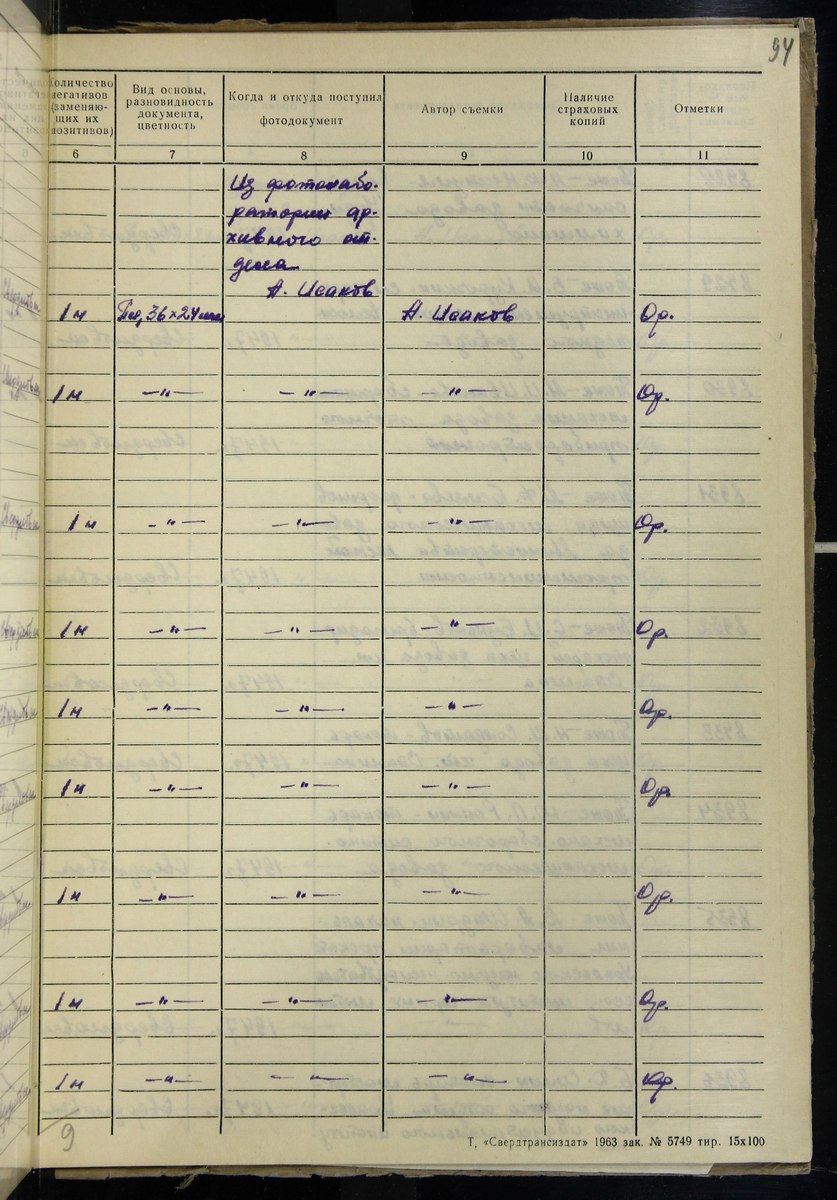 94
Количество негативов (заменяющих их позитивов)
Вид основы, разновидность документа, цветность
Когда и откуда поступил фотодокумент
Автор съемки
Наличие страховых копий
Отметки
6 7 8 9 10 11
Из фотолабо-
ратории ар-
хивного от-
дела
А. Исаков
1 н 36×24 мм А. Исаков Ор.
1 н —"— —"— —"— Ор.
1 н —"— —"— —"— Ор.
1 н —"— —"— —"— Ор.
1 н —"— —"— —"— Ор.
1 н —"— —"— —"— Ор.
1 н —"— —"— —"— Ор.
1 н —"— —"— —"— Ор.
1 н —"— —"— —"— Ор.
9
Т, «Свердтрансиздат» 1963 зак. № 5749 тир. 15х100